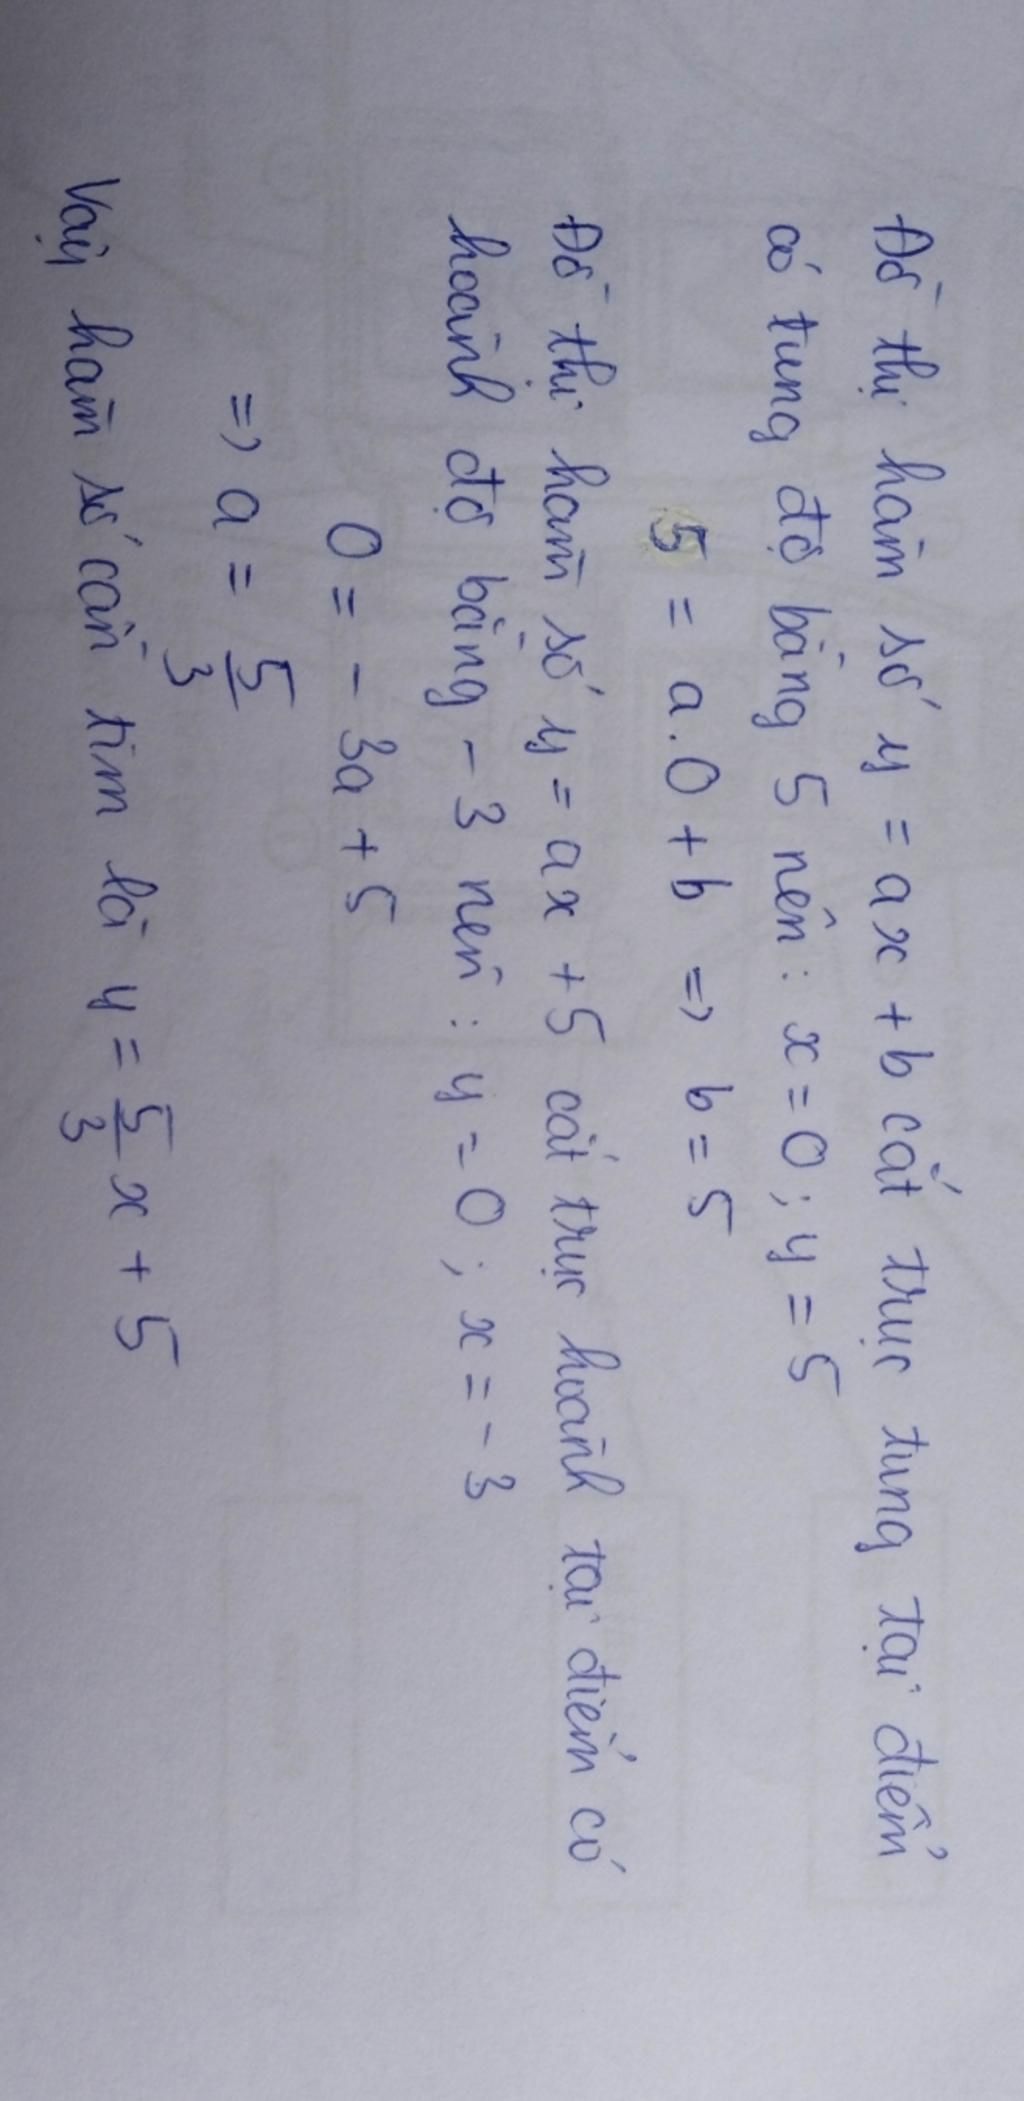 Đồ thị hàm số y = ax + b cắt trục tung tại điểm
có tung độ bằng 5 nên : x = 0 ; y = 5
5 = a.0 + b => b = 5
Đồ thị hàm số y = ax + 5 cắt trục hoành tại điểm có
hoành độ bằng - 3 nên : y = 0 ; x = - 3
0 = - 3a + 5
=> a = 5/3
Vậy hàm số cần tìm là y = 5/3 x + 5